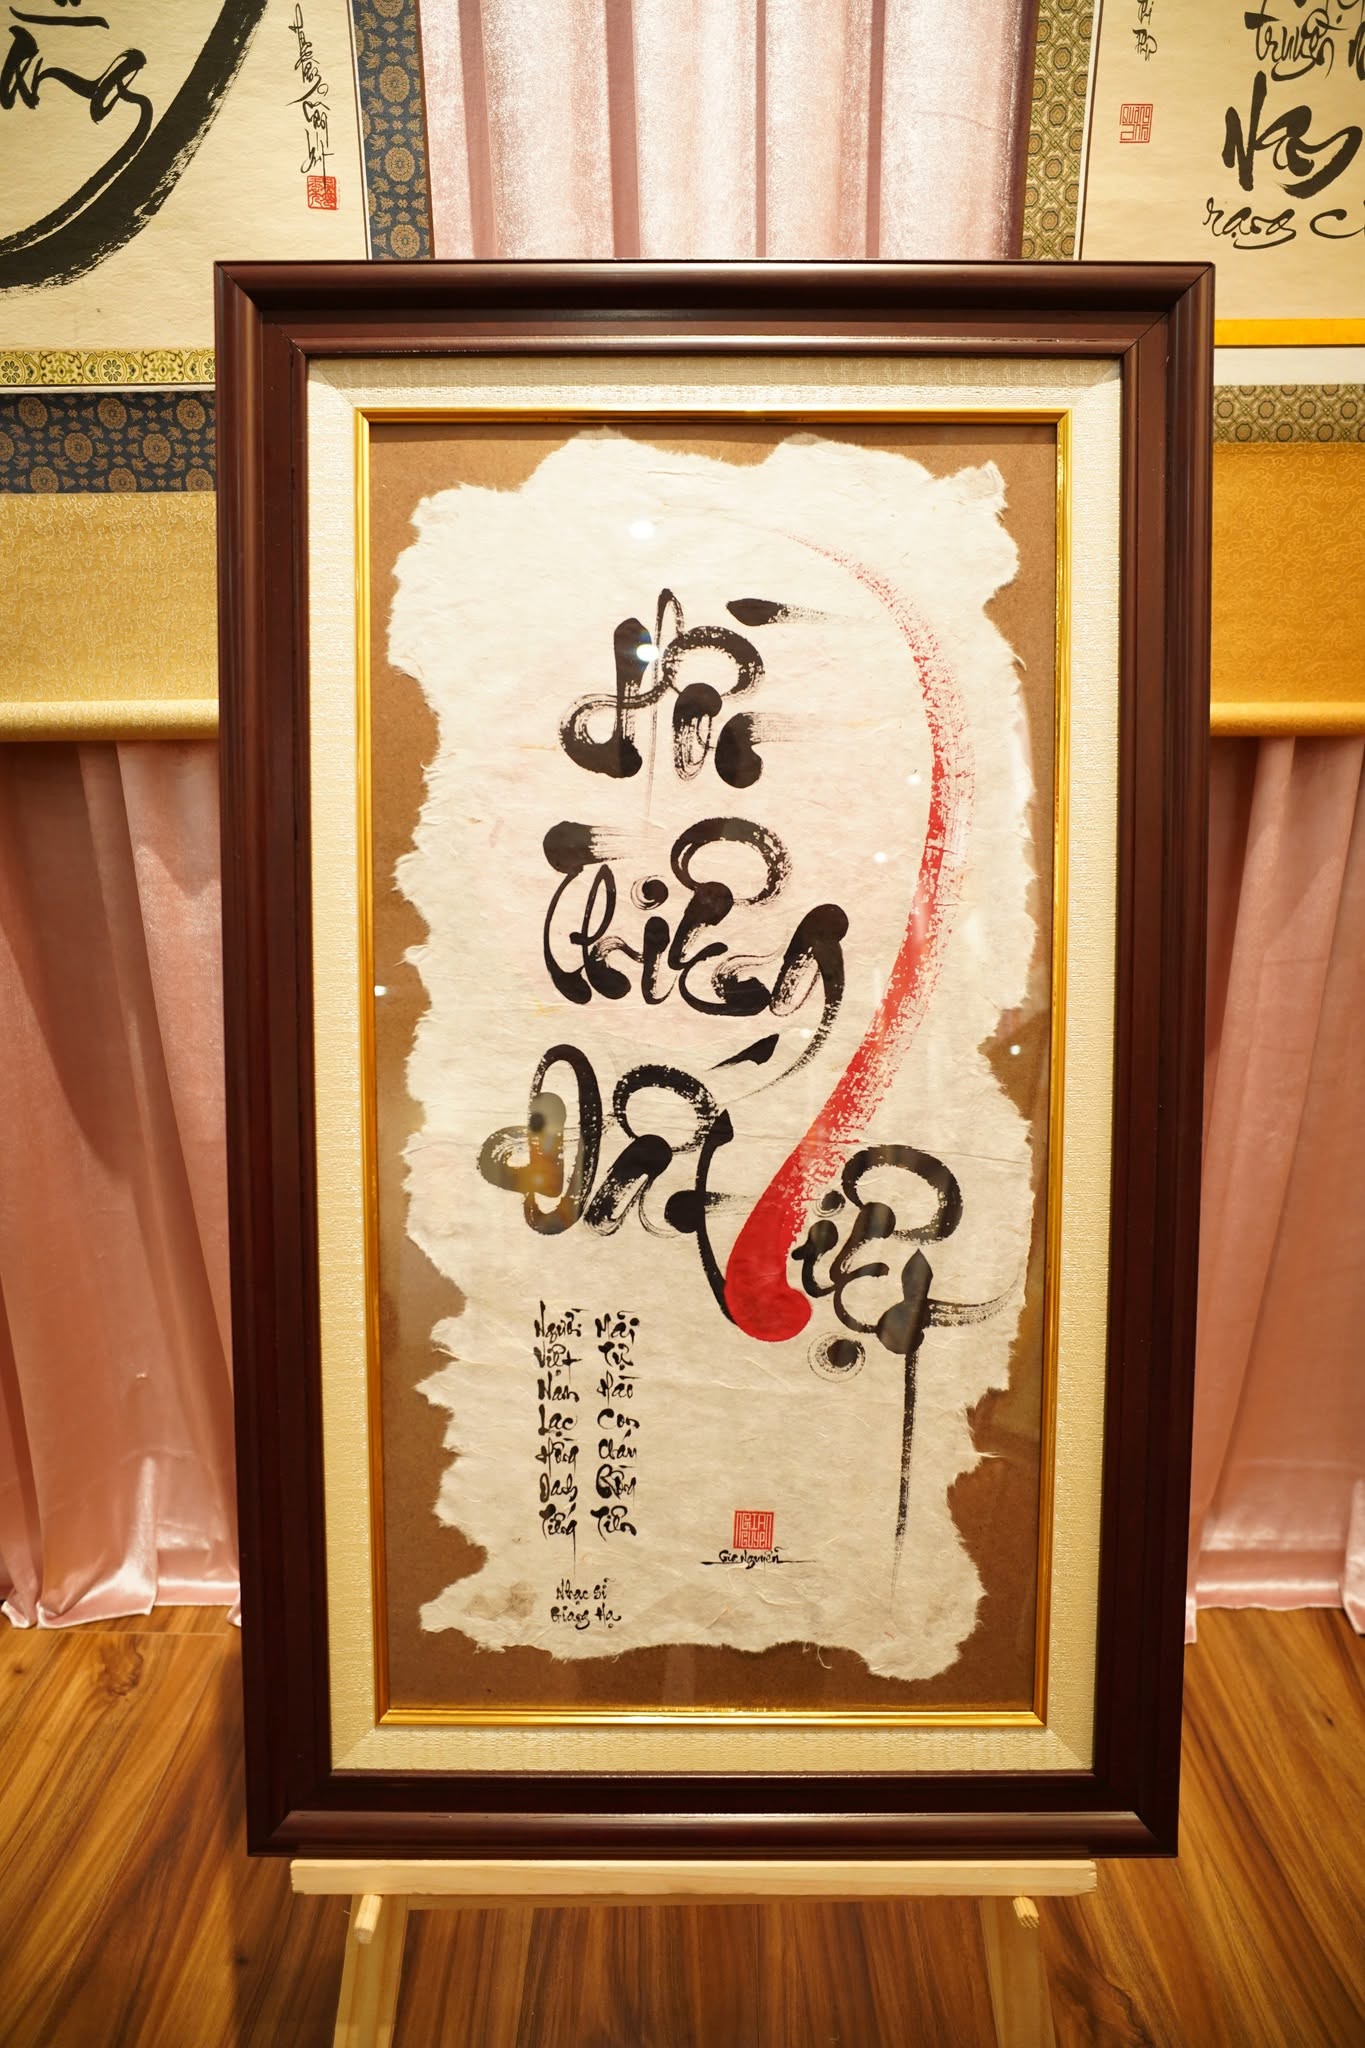 Hồn
Thiêng
Đất Việt
Người Việt Nam Lạc Hồng Danh Tiếng
Mãi Tự Hào Con Cháu Rồng Tiên
Nhạc sĩ
Giang Hạ
GIA
NGUYEN
Gia Nguyễn
truyền
Nam
rạng
QUANG